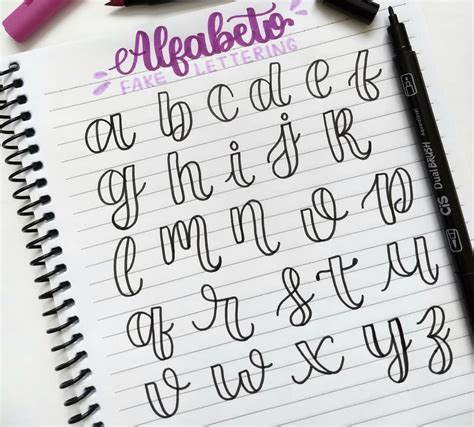 Alfabeto
FAKE LETTERING
a b c d e f
g h i j k
l m n o p
q r s t u
v w x y z
CiS DualBRUSH